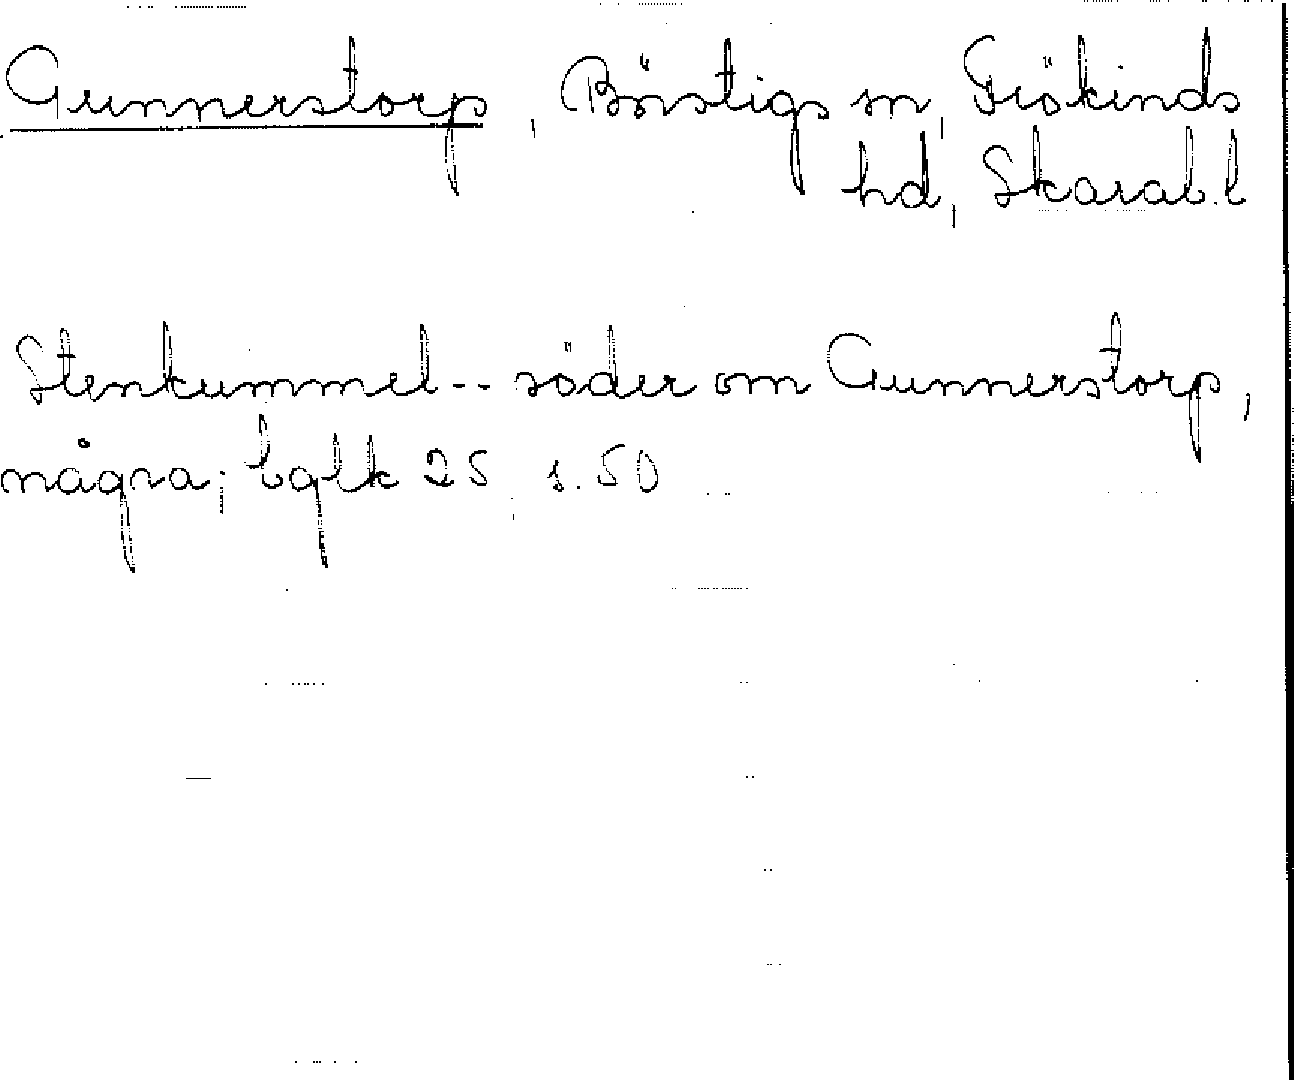 Gunnerstorp, Börstigs sn, Frökinds
hd, Skarab.l
Stenkummel-- söder om Gunnerstorp,
några; bglk 25 s.50